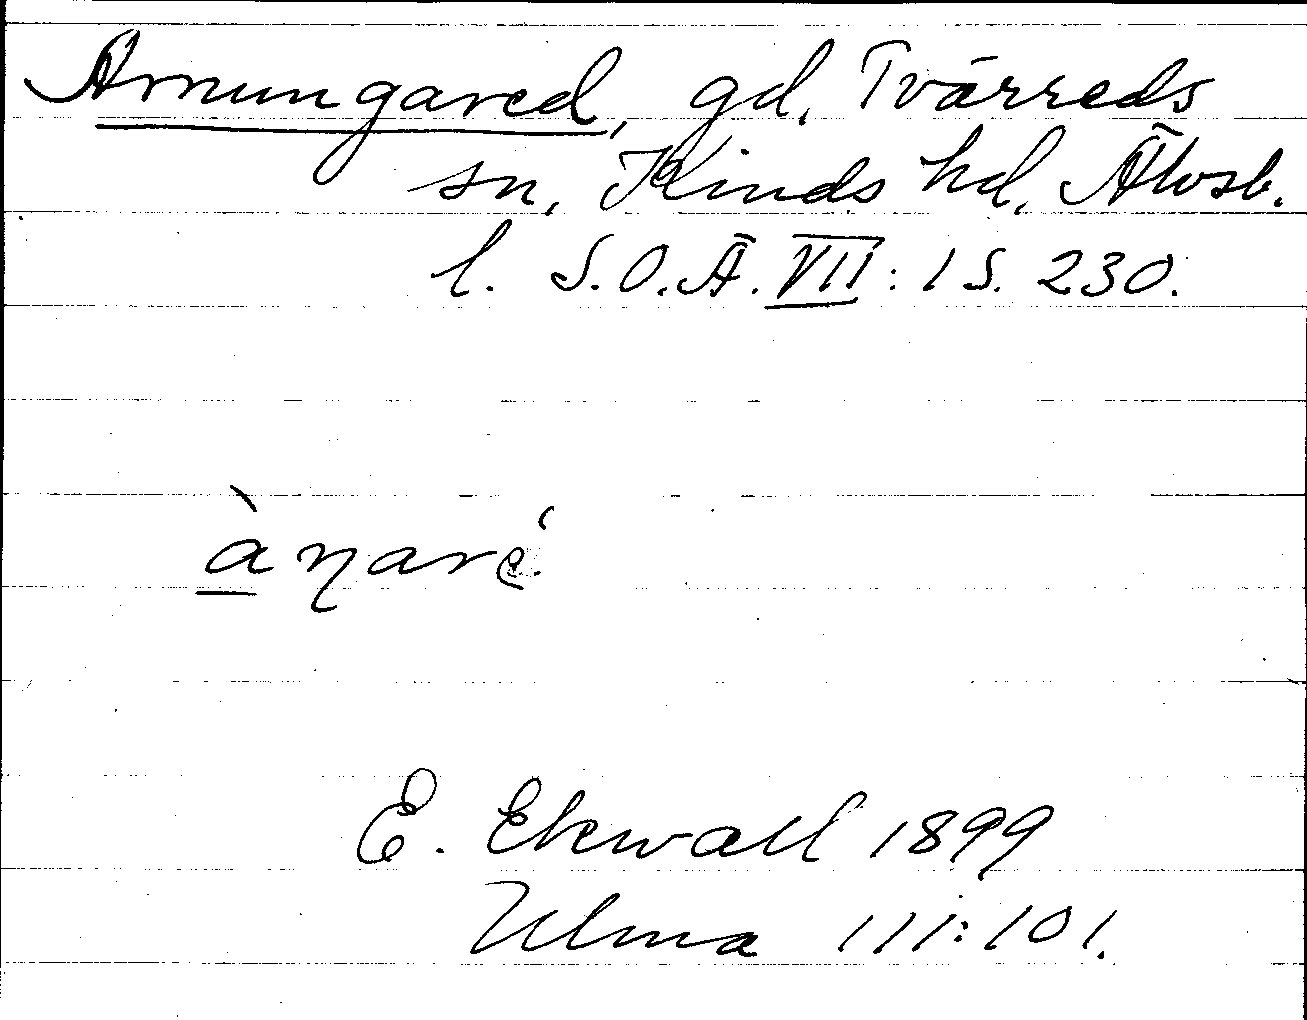 Arnungared, gd, Tvärreds
sn, Kinds hd, Älvsb.
l. S.O.Ä. VII: 1 S. 230.
à ŋaré
E. Ekwall 1899
Ulma 111:101.